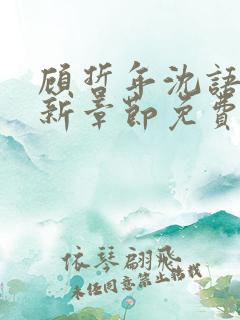 顾哲年沈语
新章节免费
依琴翩飞
未经同意禁止转载